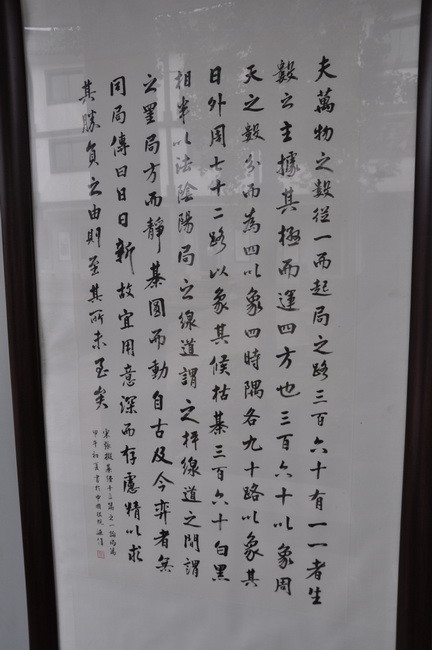 夫萬物之數從一而起局之路三百六十有一一者生
數之主據其極而運四方也三百六十以象周
天之數分而為四以象四時隅各九十路以象其
日外周七十二路以象其候枯棊三百六十白黑
相半以法陰陽局之線道謂之枰線道之間謂
之罣局方而靜棊圓而動自古及今弈者無
同局傳曰日日新故宜用意深而存慮精以求
其勝負之由則至其所未至矣
宋張擬棊經十三篇之一論局篇
甲午初夏書於中國棋院